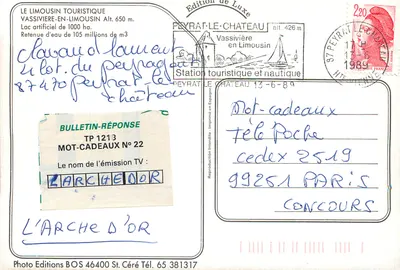 LE LIMOUSIN TOURISTIQUE
VASSIVIERE-EN-LIMOUSIN Alt. 650 m.
Lac artificiel de 1000 ha.
Retenue d'eau de 105 millions de m3
Edition de Luxe
PEYRAT-LE-CHATEAU
alt 426 m
Vassivière
en Limousin
Station touristique et nautique
PEYRAT LE CHATEAU 13-6-89
2,20
1989
laurent
4 lot. du
87470 Peyrat le
château
BULLETIN-RÉPONSE
TP 1213
MOT-CADEAUX Nº 22
Le nom de l'émission TV :
L'ARCHE D'OR
L'ARCHE D'OR
Mot-cadeaux
Télé Poche
cedex 2519
99251 PARIS
CONCOURS
Photo Editions BOS 46400 St. Céré Tél. 65 381317